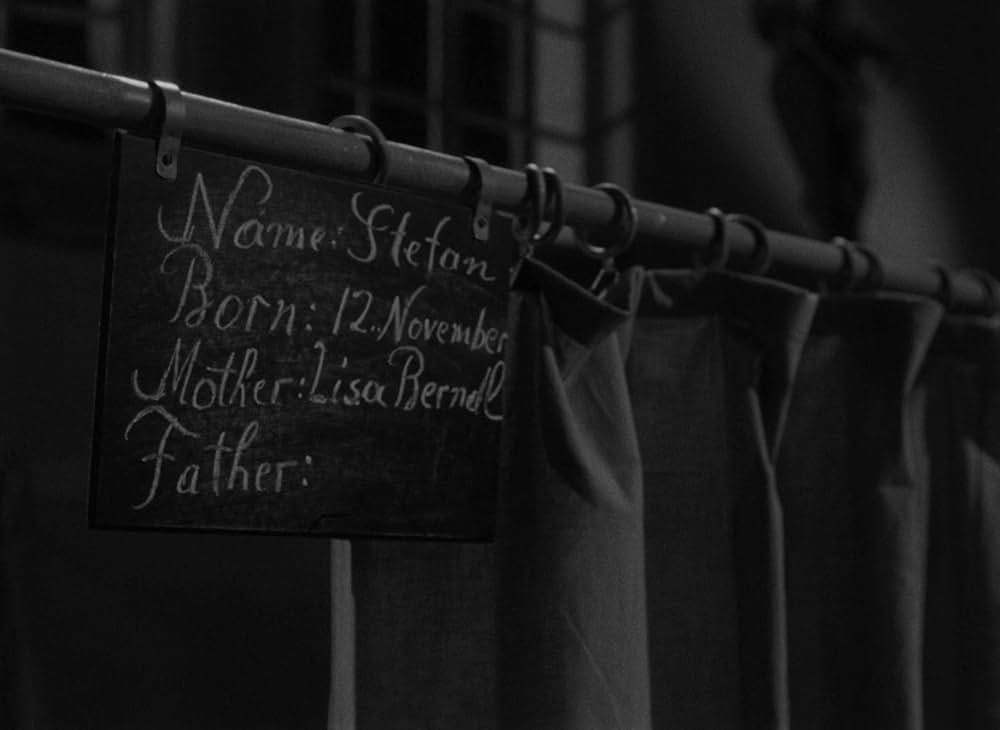 Name: Stefan
Born: 12. November
Mother: Lisa Berndle
Father: